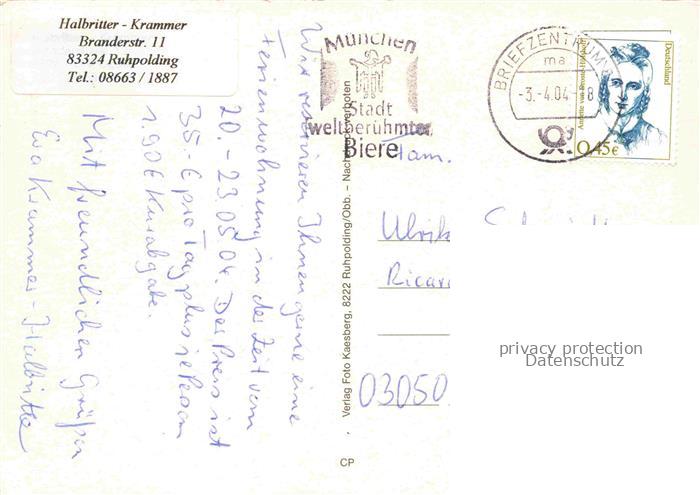 Halbritter - Krammer
Branderstr. 11
83324 Ruhpolding
Tel.: 08663 / 1887
Wir reservieren Ihnen gerne eine
Ferienwohnung in der Zeit vom
20. - 23.05.04. Der Preis ist
35.- € pro Tag plus je Person
1.90 € Kurabgabe.
Mit freundlichen Grüßen
Eva Krammer-Halbritter
Verlag Foto Kaesberg, 8222 Ruhpolding/Obb. - Nachdruck verboten
CP
München
Stadt
weltberühmter
Biere
BRIEFZENTRUM
ma
-3.-4.04-8
Deutschland
Annette von Droste-Hülshoff
0,45€
Fam.
Ulrik
Ricar
03050
privacy protection
Datenschutz